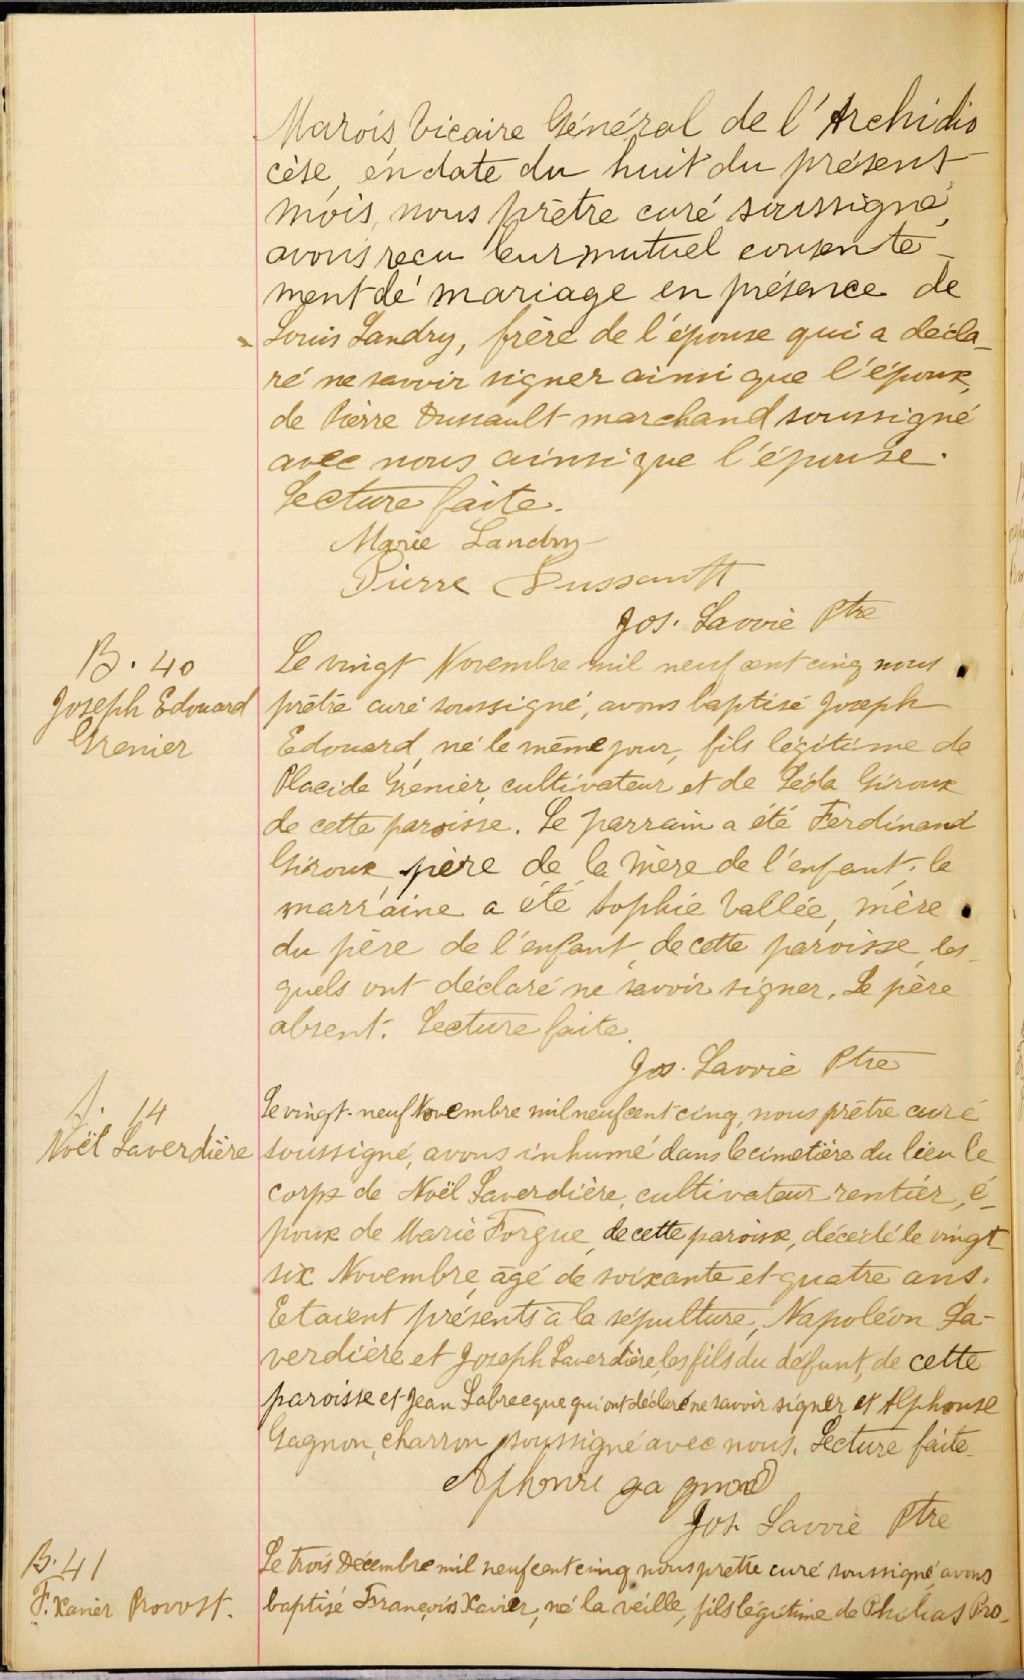 Marois, Vicaire Général de l'Archidio
cèse, en date du huit du présent
mois, nous prêtre curé soussigné,
avons reçu leur mutuel consente-
ment de mariage en présence de
Louis Landry, frère de l'épouse qui a décla-
ré ne savoir signer ainsi que l'époux,
de Pierre Dussault marchand soussigné
avec nous ainsi que l'épouse.
Lecture faite.
Marie Landry
Pierre Dussault
Jos. Lavoie Ptre
B. 40
Joseph Edouard
Grenier
Le vingt Novembre mil neuf cent cinq nous
prêtre curé soussigné, avons baptisé Joseph
Edouard, né le même jour, fils légitime de
Placide Grenier, cultivateur et de Léda Giroux
de cette paroisse. Le parrain a été Ferdinand
Giroux, père de la mère de l'enfant; la
marraine a été Sophie Vallée, mère
du père de l'enfant, de cette paroisse, les-
quels ont déclaré ne savoir signer. Le père
absent. Lecture faite.
Jos. Lavoie Ptre
S. 14
Noël Laverdière
Le vingt-neuf Novembre mil neuf cent cinq, nous prêtre curé
soussigné, avons inhumé dans le cimetière du lieu le
corps de Noël Laverdière, cultivateur rentier, é-
poux de Marie Forgue, de cette paroisse, décédé le vingt
six Novembre, âgé de soixante et quatre ans.
Etaient présents à la sépulture, Napoléon La-
verdière et Joseph Laverdière, les fils du défunt, de cette
paroisse et Jean Labrecque qui ont déclaré ne savoir signer et Alphonse
Gagnon, charron, soussigné avec nous. Lecture faite
Alphonse gagnon
Jos. Lavoie Ptre
B. 41
F. Xavier Provost.
Le trois Décembre mil neuf cent cinq nous prêtre curé soussigné, avons
baptisé François Xavier, né la veille, fils légitime de Philias Pro-